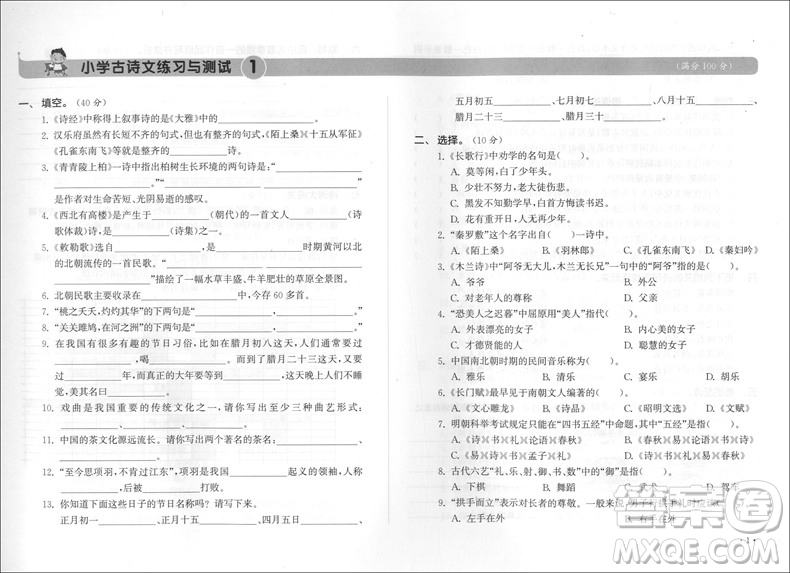 小学古诗文练习与测试 1
(满分 100 分)
一、填空。(40 分)
1.《诗经》中称得上叙事诗的是《大雅》中的____、____、____、____、____。
2. 汉乐府虽然有长短不齐的句式,但也有整齐的句式,《陌上桑》《十五从军征》
《孔雀东南飞》等就是____。
3.《青青陵上柏》一诗中指出柏树生长环境的两句诗是:“____,
____。”“____,____。”
是作者对生命苦短、光阴易逝的感叹。
4.《西北有高楼》是产生于____(朝代)的一首文人____(诗
歌体裁)诗,是____(诗集)之一。
5.《敕勒歌》选自____,是____时期黄河以
北的北朝流传的一首民歌。____,____,
____”描绘了一幅水草丰盛、牛羊肥壮的草原全景图。
6. 北朝民歌主要收录在____中,今存 60 多首。
7. “桃之夭夭,灼灼其华”的下两句是“____,____。”
8. “关关雎鸠,在河之洲”的下两句是“____,____。”
9. 在我国有很多有趣的节日习俗,比如在腊月初八这一天,要吃
____,喝____。而到了腊月二十三这天,又要吃
____、____、____等。在除夕的晚上,人们不睡觉,
美其名曰____。
10. 戏曲是我国重要的传统文化之一,请你写出三种曲艺形式:
____、____、____。
11. 中国的茶文化源远流长。请你写出我国的几个名茶:____、
____、____。
12. “至今思项羽,不肯过江东”,项羽是因____起义的领袖,其
后被____打败。
13. 你知道下面这些日子的节日名称吗?请你写下来吧!
正月初一____、正月十五____、四月五日____、
五月初五____、七月初七____、八月十五____、
腊月二十三____、腊月三十____。
二、选择。(10 分)
1.《长歌行》中劝学的名句是( )。
A. 莫等闲,白了少年头。
B. 少壮不努力,老大徒伤悲。
C. 黑发不知勤学早,白首方悔读书迟。
D. 花有重开日,人无再少年。
2. “秦罗敷”这个名字出自( )一诗中。
A.《陌上桑》 B.《羽林郎》 C.《孔雀东南飞》 D.《秦妇吟》
3.《木兰诗》中“阿爷无大儿,木兰无长兄”一句中的“阿爷”指的是( )。
A. 爷爷 B. 外公
C. 对老年人的尊称 D. 父亲
4. “恐美人之迟暮”中屈原用“美人”指代( )。
A. 外表漂亮的女子 B. 内心美的女子
C. 有政治才能的人 D. 聪慧的女子
5. 中国南北朝时期的民间音乐称为( )。
A. 雅乐 B. 清乐 C. 燕乐 D. 胡乐
6.《长门赋》最早见于南朝文人编著的( )。
A.《文心雕龙》 B.《诗品》 C.《昭明文选》 D.《文赋》
7. 明朝科举考试要求学“四书五经”,其中“五经”是指( )。
A.《诗》《书》《礼》《论语》《春秋》 B.《春秋》《易》《论语》《书》《诗》
C.《诗》《书》《易》《孟子》《礼》 D.《诗》《书》《礼》《易》《春秋》
8. 古代六艺“礼、乐、射、御、书、数”中的“御”是指( )。
A. 下棋 B. 舞蹈 C. 武术 D. 驾车
9. “拱手而立”表示对长者的尊敬。一般来说,男子行拱手礼时应该
A. 左手在外 B. 右手在外
· 1 ·
答案圈
MXQE.COM